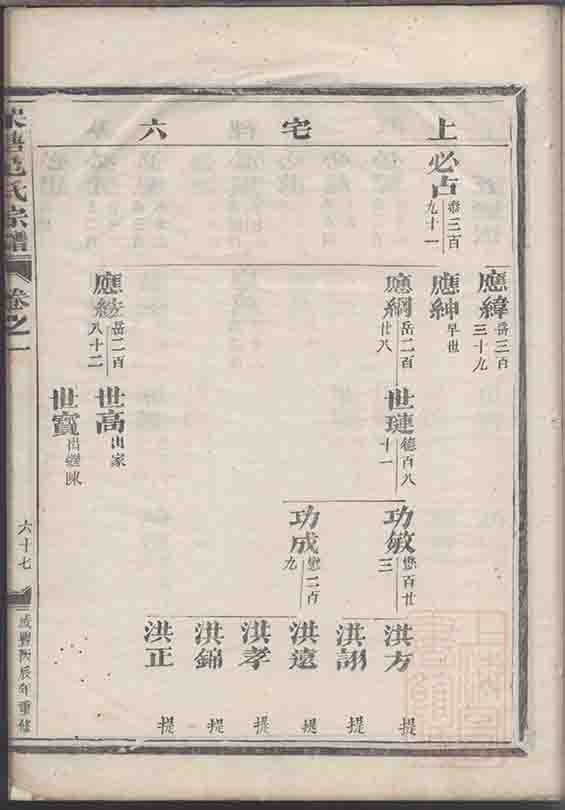 上宅六
必占
泰三百
九十一
應緯
岳三百
三十九
應紳
早世
應綱
岳二百
廿八
岳二百
八十二
世璉
德百八
十一
世高
出家
世寳
出繼陳
功敏
懋百廿
三
功成
懋二百
九
洪方
提
洪詡
提
洪遠
提
洪孝
提
洪錦
提
洪正
提
氏宗譜
卷之一
六十七
咸豐丙辰年重修